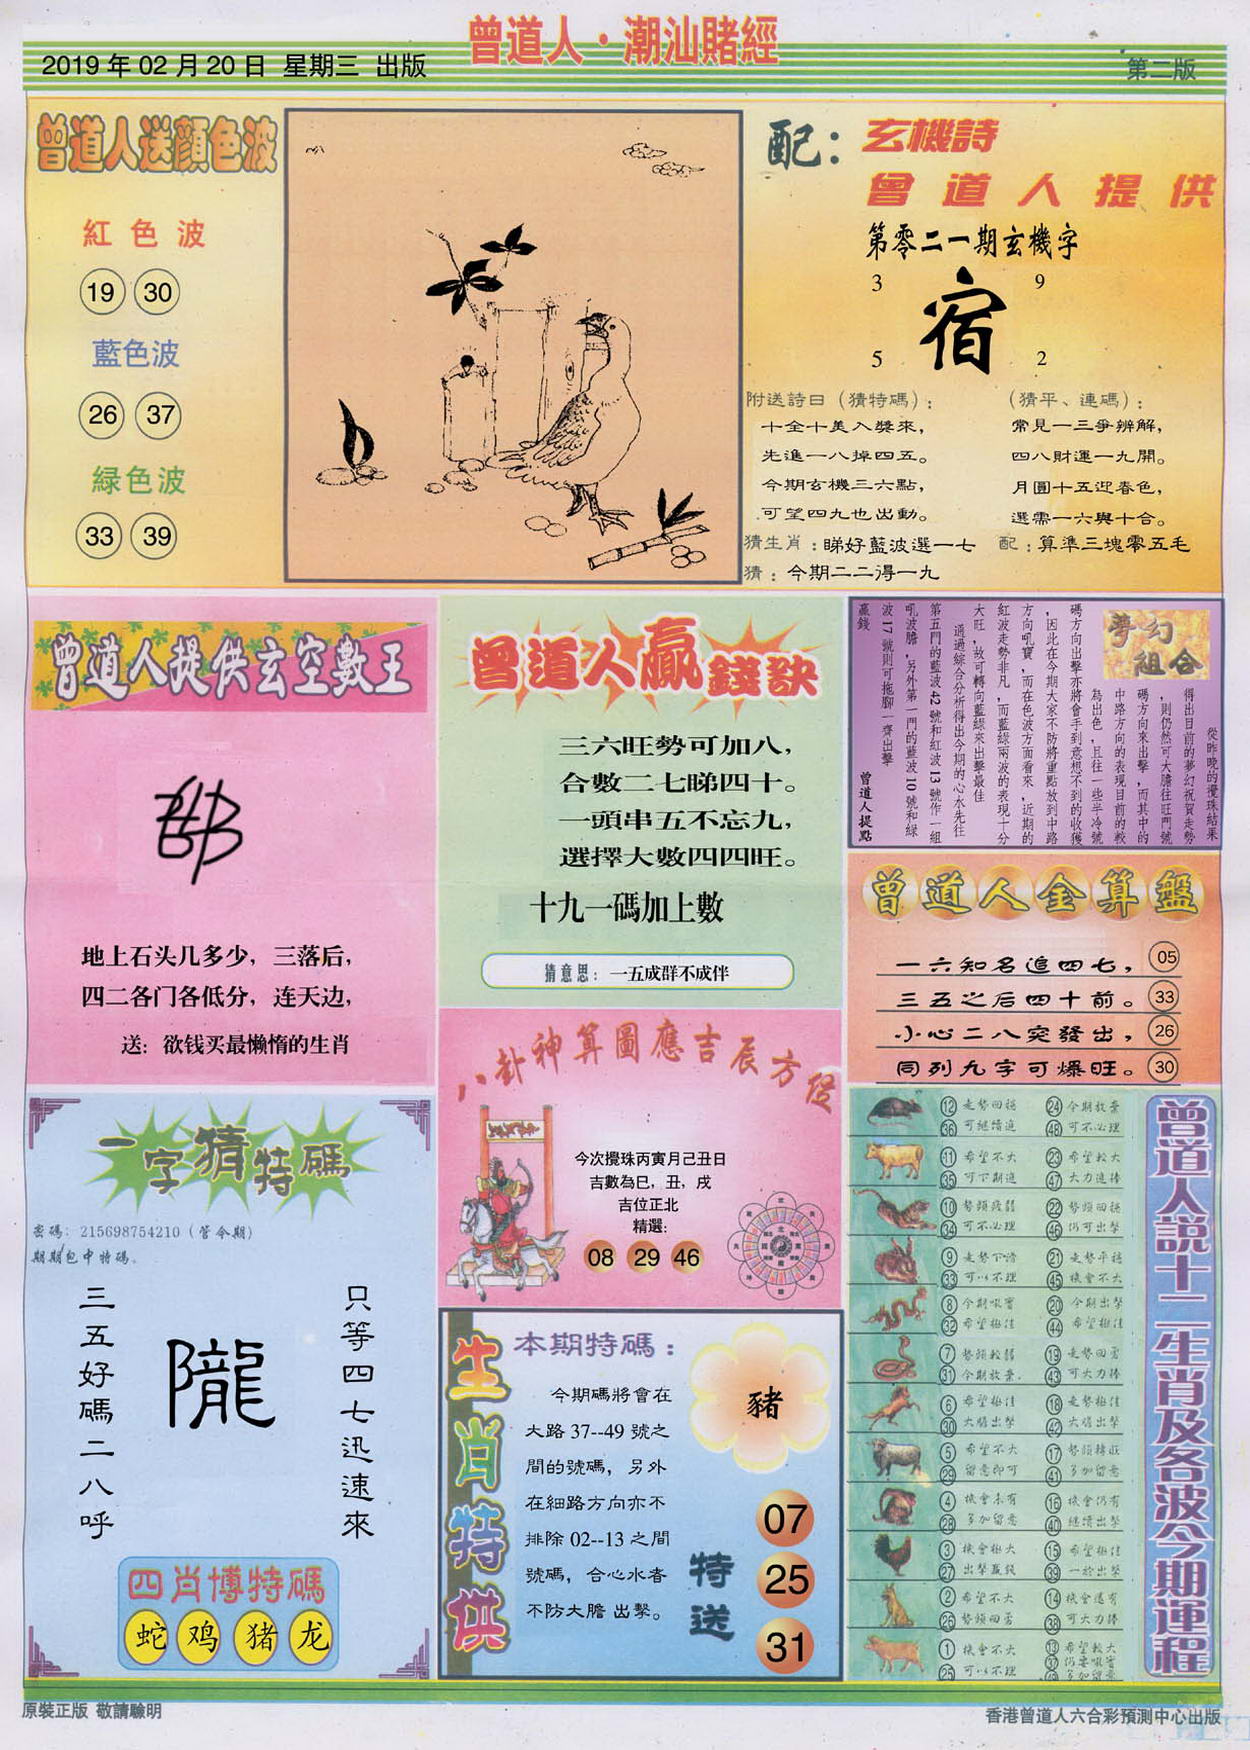 曾道人·潮汕賭經
2019 年 02 月 20 日 星期三 出版
第二版
曾道人送顔色波
紅色波
19 30
藍色波
26 37
緑色波
33 39
配：玄機詩
曾道人提供
第零二一期玄機字
3 9
宿
5 2
附送詩曰（猜特碼）：
十全十美入獎來，
先進一八掉四五。
今期玄機三六點，
可望四九也出動。
猜生肖：睇好藍波選一七
猜：今期二二得一九
（猜平、連碼）：
常見一三爭辨解，
四八財運一九開。
月圓十五迎春色，
選需一六與十合。
配：算準三塊零五毛
曾道人提供玄空數王
地上石头几多少，三落后，
四二各门各低分，连天边，
送：欲钱买最懒惰的生肖
曾道人贏錢訣
三六旺勢可加八，
合數二七睇四十。
一頭串五不忘九，
選擇大數四四旺。
十九一碼加上數
猜意思：一五成群不成伴
夢幻組合
從昨晚的攪珠結果
得出目前的夢幻祝賀走勢
，則仍然可大膽往旺門號
碼方向來出擊，而其中的
中路方向的表現目前的較
為出色，且往一些半冷號
碼方向出擊亦將會手到意想不到的收獲
，因此在今期大家不防將重點放到中路
方向吼寶，而在色波方面看來，近期的
紅波走勢非凡，而藍綠兩波的表現十分
大旺，故可轉向藍綠來出擊最佳
通過綜合分析得出今期的心水先往
第五門的藍波 42 號和紅波 13 號作一組
吼波膽，另外第一門的藍波 10 號和綠
波 17 號則可拖腳一齊出擊
贏錢
曾道人提點
曾道人金算盤
一六知名追四七， 05
三五之后四十前。 33
小心二八突發出， 26
同列九字可爆旺。 30
一字猜特碼
密碼：215698754210（管令期）
期期包中特碼。
三五好碼二八呼
隴
只等四七迅速來
四肖博特碼
蛇 鸡 猪 龙
八卦神算圖應吉辰方位
今次攪珠丙寅月己丑日
吉數為巳，丑，戌
吉位正北
精選：
08 29 46
生肖特供
本期特碼：
今期碼將會在
大路 37--49 號之
間的號碼，另外
在細路方向亦不
排除 02--13 之間
號碼，合心水者
不防大膽出擊。
豬
特送
07
25
31
曾道人説十二生肖及各波今期運程
12 走勢回穩 24 今期放棄
36 可繼續追 48 可不必理
11 希望不大 23 希望較大
35 可下期追 47 大力追捧
10 勢頭疲弱 22 勢頭回穩
34 可不必理 46 仍可出擊
9 走勢下滑 21 走勢平穩
33 可以不理 45 機會不大
8 今期吼寶 20 今期出擊
32 希望極佳 44 希望極佳
7 勢頭較弱 19 走勢回勇
31 今期放棄 43 可大力捧
6 希望極佳 18 走勢極佳
30 大膽出擊 42 大膽出擊
5 希望不大 17 勢頭轉旺
29 留意即可 41 多加留意
4 機會未有 16 機會仍有
28 多加留意 40 繼續出擊
3 機會極大 15 希望極佳
27 出擊贏錢 39 一於出擊
2 希望不大 14 機會還有
26 勢頭回勇 38 可大力捧
1 機會不大 13 希望較大
25 可以不理 37 仍要吼實
49 多加留意
原裝正版 敬請驗明
香港曾道人六合彩預測中心出版